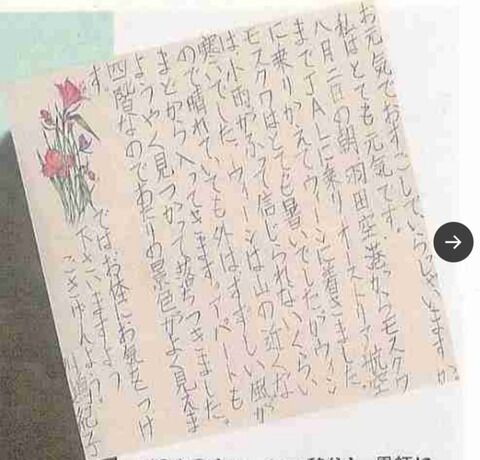 お元気でおすごしでいらっしゃいますか。
私はとても元気です。
八月二日の朝、羽田空港からモスクワ
までJALに乗り、オーストリア航空
に乗りかえてウィーンに着きました。
モスクワはとても暑いでしたがウィーン
は小雨がふって信じられないくらい
寒いでした。ウィーンは山の近くな
ので晴れていても外はすずしい風が
まどから入ってきます。アパートも
ようやく見つかって落ちつきました。
四階なのであたりの景色がよく見えま
す。
ではお体にお気をつけ
下さいますよう
ごきげんよう
川嶋紀子